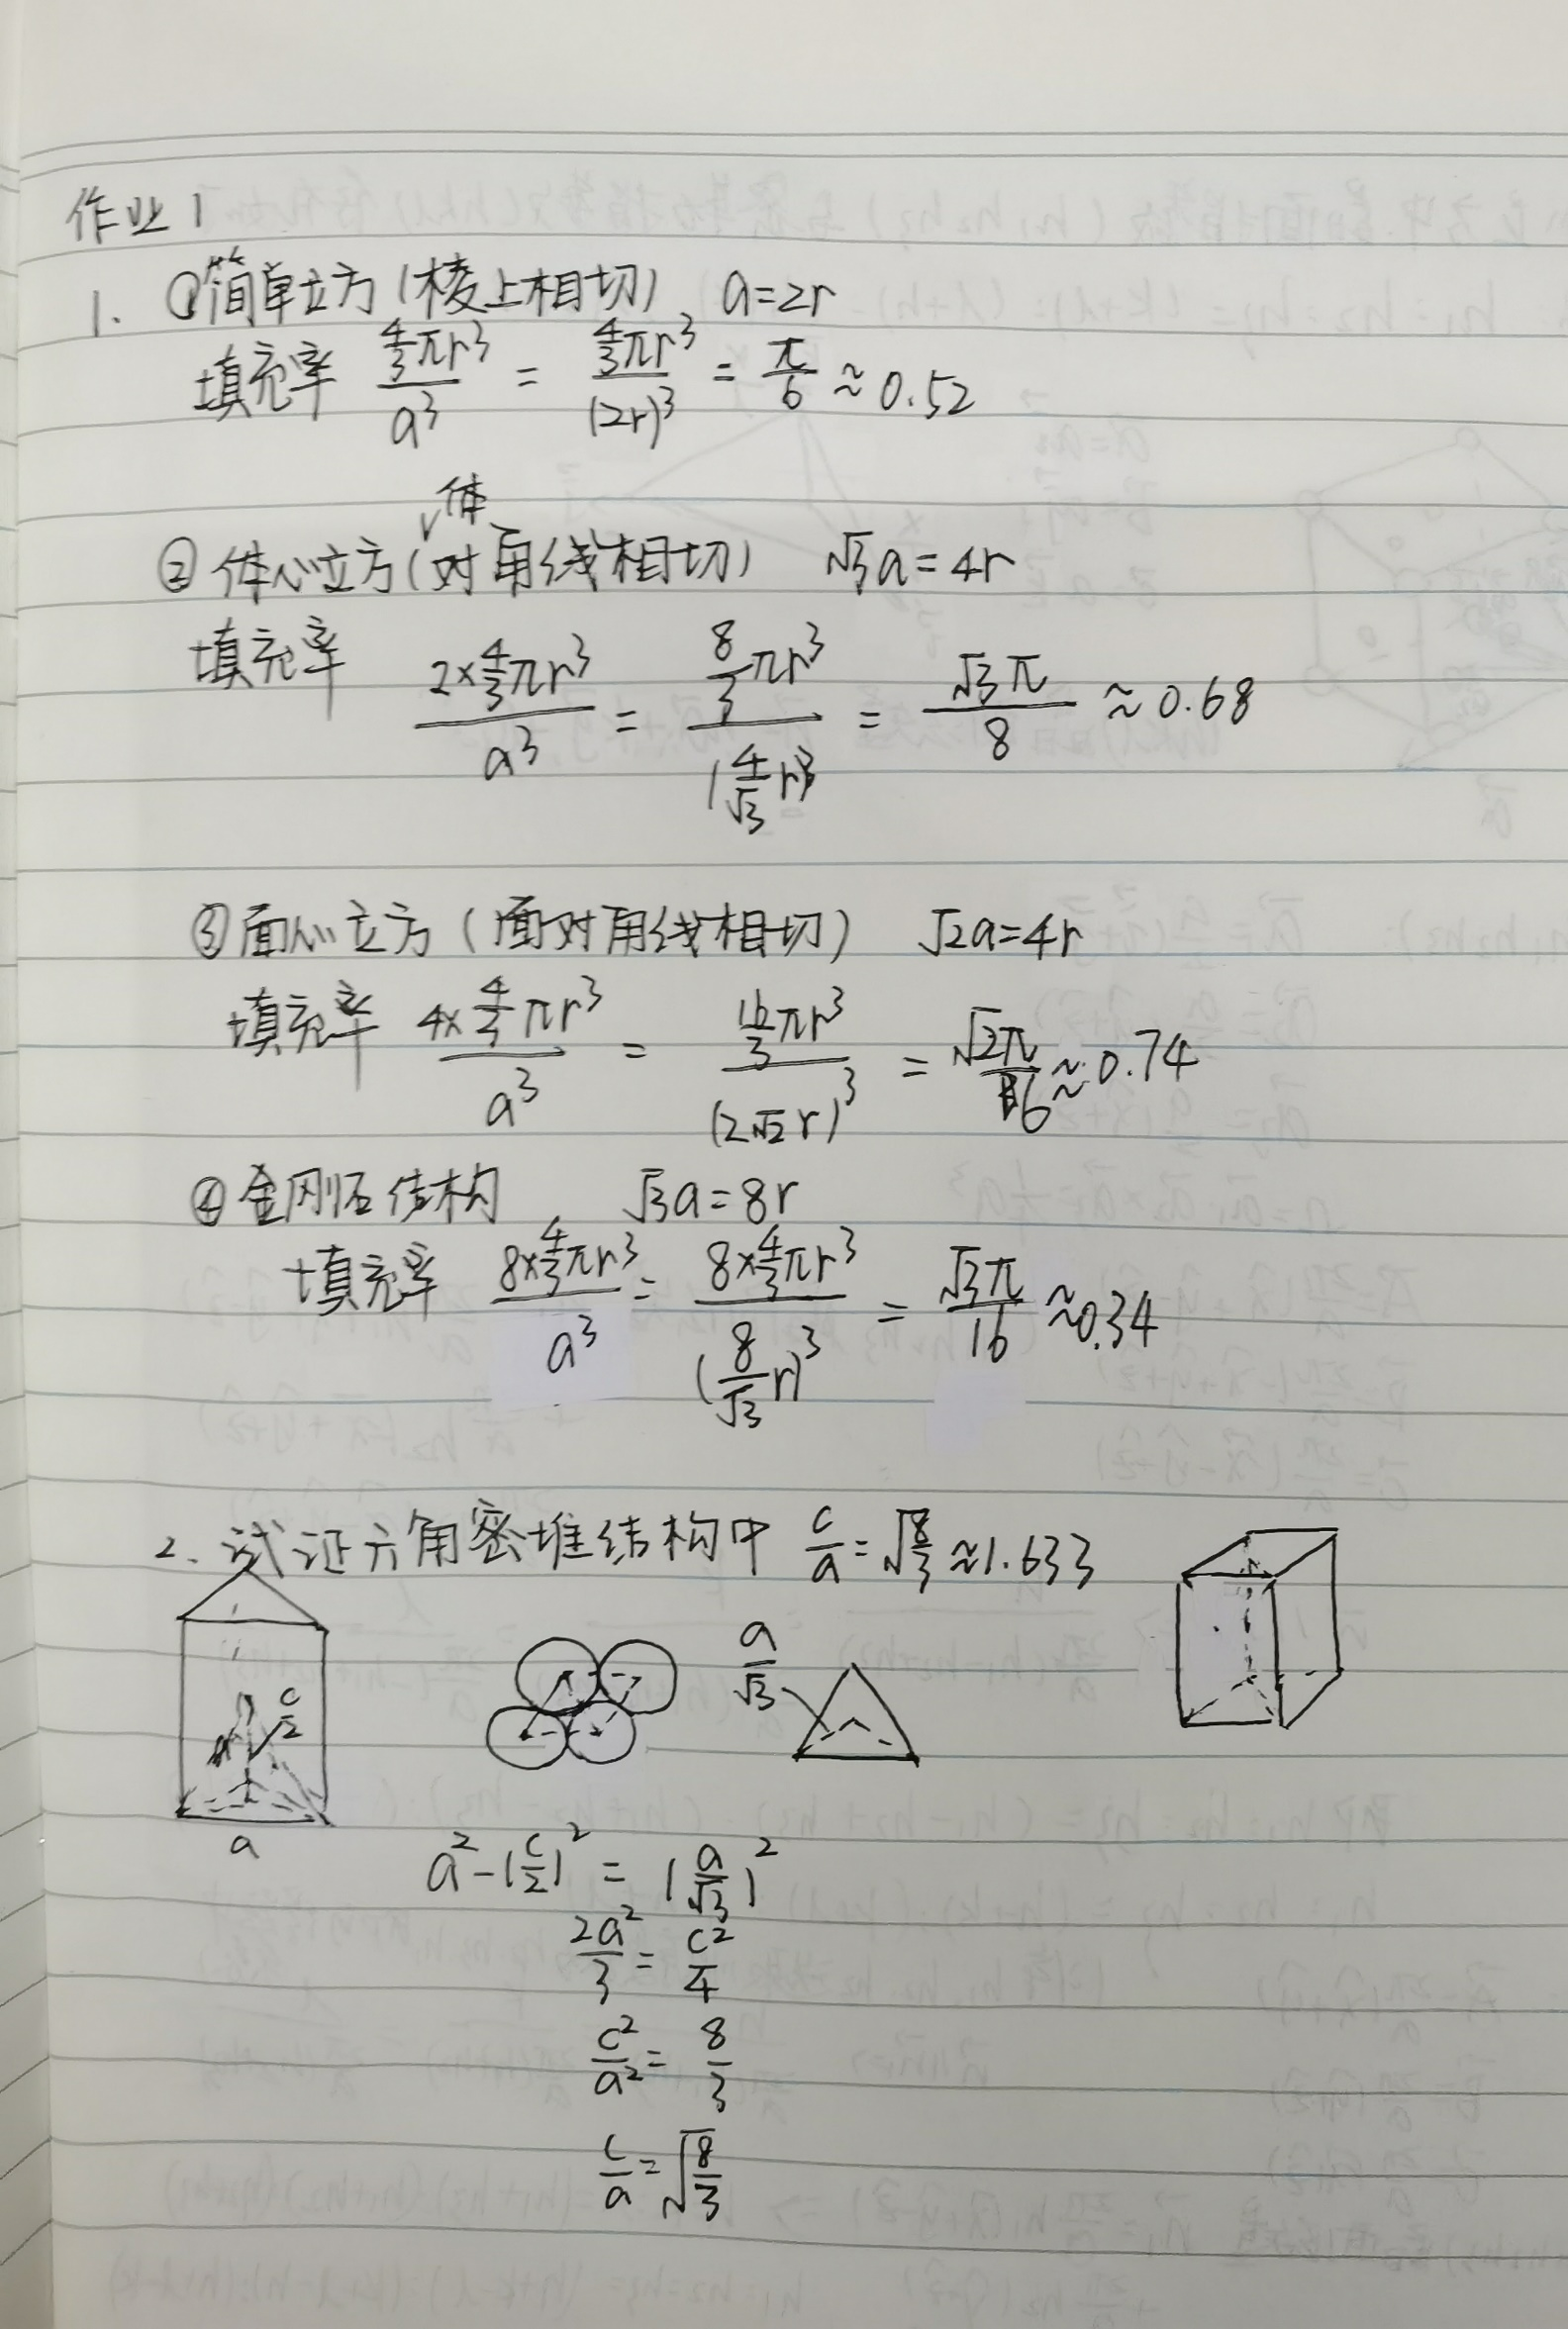 作业1
1. ①简单立方(棱上相切) a=2r
填充率 \frac{\frac{4}{3}πr^3}{a^3} = \frac{\frac{4}{3}πr^3}{(2r)^3} = \frac{π}{6} ≈ 0.52
②体心立方(体对角线相切) √3a=4r
填充率 \frac{2×\frac{4}{3}πr^3}{a^3} = \frac{\frac{8}{3}πr^3}{(\frac{4}{√3}r)^3} = \frac{√3π}{8} ≈0.68
③面心立方(面对角线相切) √2a=4r
填充率 \frac{4×\frac{4}{3}πr^3}{a^3} = \frac{\frac{16}{3}πr^3}{(2√2r)^3} = \frac{√2π}{6} ≈0.74
④金刚石结构 √3a=8r
填充率 \frac{8×\frac{4}{3}πr^3}{a^3} = \frac{8×\frac{4}{3}πr^3}{(\frac{8}{√3}r)^3} = \frac{√3π}{16} ≈0.34
2. 试证六角密堆结构中 \frac{c}{a}=\sqrt{\frac{8}{3}}≈1.633
\frac{c}{2}
a
\frac{a}{√3}
a^2-(\frac{c}{2})^2 = (\frac{a}{√3})^2
\frac{2a^2}{3} = \frac{c^2}{4}
\frac{c^2}{a^2} = \frac{8}{3}
\frac{c}{a} = \sqrt{\frac{8}{3}}